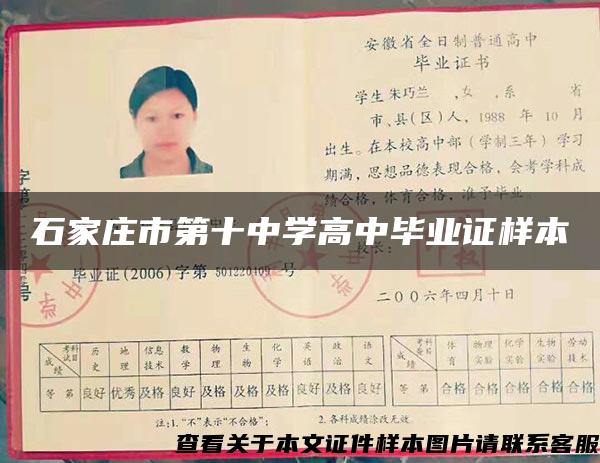 安徽省全日制普通高中
毕业证书
学生 朱巧兰 ,女 ,系 省
市、县(区)人, 1988 年 10 月
出生。在本校高中部(学制三年)学习
期满,思想品德表现合格,会考学科成
绩合格,体育合格,准予毕业。
石家庄市第十中学高中毕业证样本
校长:
毕业证(2006)字第 501220109 号
二00六年四月十日
考试科目 历史 地理 信息技术 数学 物理 生物 化学 英语 政治 语文
成绩
等第 良好 优秀 及格 良好 及格 及格 及格 良好 及格 良好
考查科目 体育 物理实验 化学实验 生物实验 劳动技术
成绩
等第 合格 合格 合格 合格 合格
注:1.“不”表示“不合格”; 2.各科成绩涂改无效
查看关于本文证件样本图片请联系客服